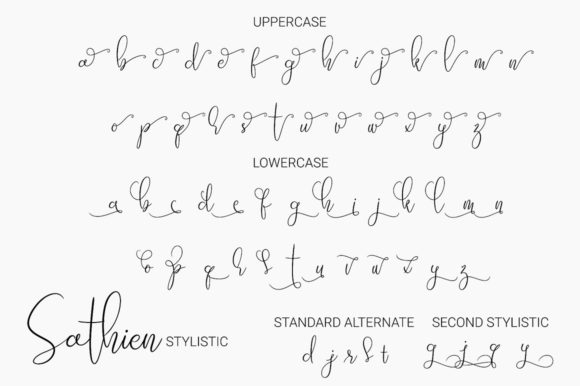 UPPERCASE
a b c d e f g h i j k l m n
o p q r s t u v w x y z
LOWERCASE
a b c d e f g h i j k l m n
o p q r s t u v w x y z
STANDARD ALTERNATE SECOND STYLISTIC
Sathien STYLISTIC d j r s t g j q y